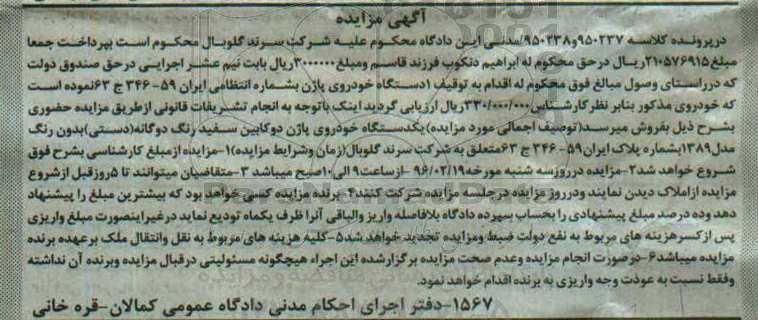 آگهی مزایده
درپرونده کلاسه ۹۵۰۲۳۷و۹۵۰۲۳۸/مدنی این دادگاه محکوم علیه شرکت سرند گلوبال محکوم است بپرداخت جمعا
مبلغ۲۱۰۵۷۶۹۱۵ریال درحق محکوم له ابراهیم دنکوب فرزند قاسم ومبلغ۳۰۰۰۰۰۰ریال بابت نیم عشر اجرایی درحق صندوق دولت
که درراستای وصول مبالغ فوق محکوم له اقدام به توقیف ۱دستگاه خودروی پاژن بشماره انتظامی ایران ۵۹-۳۴۶ج ۶۳نموده است
که خودروی مذکور بنابر نظر کارشناس۳۳۰/۰۰۰/۰۰۰ریال ارزیابی گردید اینک باتوجه به انجام تشریفات قانونی ازطریق مزایده حضوری
بشرح ذیل بفروش میرسد(توصیف اجمالی مورد مزایده)یکدستگاه خودروی پاژن دوکابین سفید رنگ دوگانه(دستی)بدون رنگ
مدل۱۳۸۹بشماره پلاک ایران۵۹-۳۴۶ج ۶۳متعلق به شرکت سرند گلوبال(زمان وشرایط مزایده)۱-مزایده ازمبلغ کارشناسی بشرح فوق
شروع خواهد شد۲-مزایده درروزسه شنبه مورخه۹۶/۰۲/۱۹-ازساعت۹ الی۱۰صبح میباشد ۳-متقاضیان میتوانند تا ۵روزقبل ازشروع
مزایده ازاملاک دیدن نمایند ودرروز مزایده درجلسه مزایده شرکت کنند۴-برنده مزایده کسی خواهد بود که بیشترین مبلغ را پیشنهاد
دهد وده درصد مبلغ پیشنهادی را بحساب سپرده دادگاه بلافاصله واریز والباقی آنرا ظرف یکماه تودیع نماید درغیراینصورت مبلغ واریزی
پس ازکسرهزینه های مربوط به نفع دولت ضبط ومزایده تجدید خواهد شد۵-کلیه هزینه های مربوط به نقل وانتقال ملک برعهده برنده
مزایده میباشد۶-درصورت انجام مزایده وعدم صحت مزایده برگزارشده این اجراء هیچگونه مسئولیتی درقبال مزایده وبرنده آن نداشته
وفقط نسبت به عودت وجه واریزی به برنده اقدام خواهد نمود.
۱۵۶۷-دفتر اجرای احکام مدنی دادگاه عمومی کمالان-قره خانی